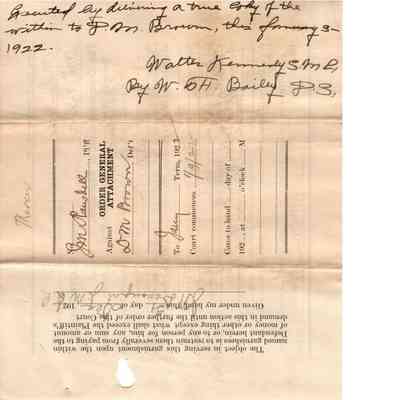 Executed by delivering a true copy of the
within to D. M. Brown, this January 3-
1922.
Walter Kennerly S.M.C,
By W. H. Bailey D.S,
J.M. Plff
ORDER GENERAL
ATTACHMENT
Against
D M Brown Def't
To July Term, 192
Court commences
Came to hand day of
192 at o'clock M
The object in serving this garnishment upon the within
named garnishee is to restrain them severally from paying to the
Defendant herein, or to any person for him, any sum or amount
of money or other thing except what shall exceed the Plaintiff's
demand in this action until the further order of this Court.
Given under my hand this day of 192